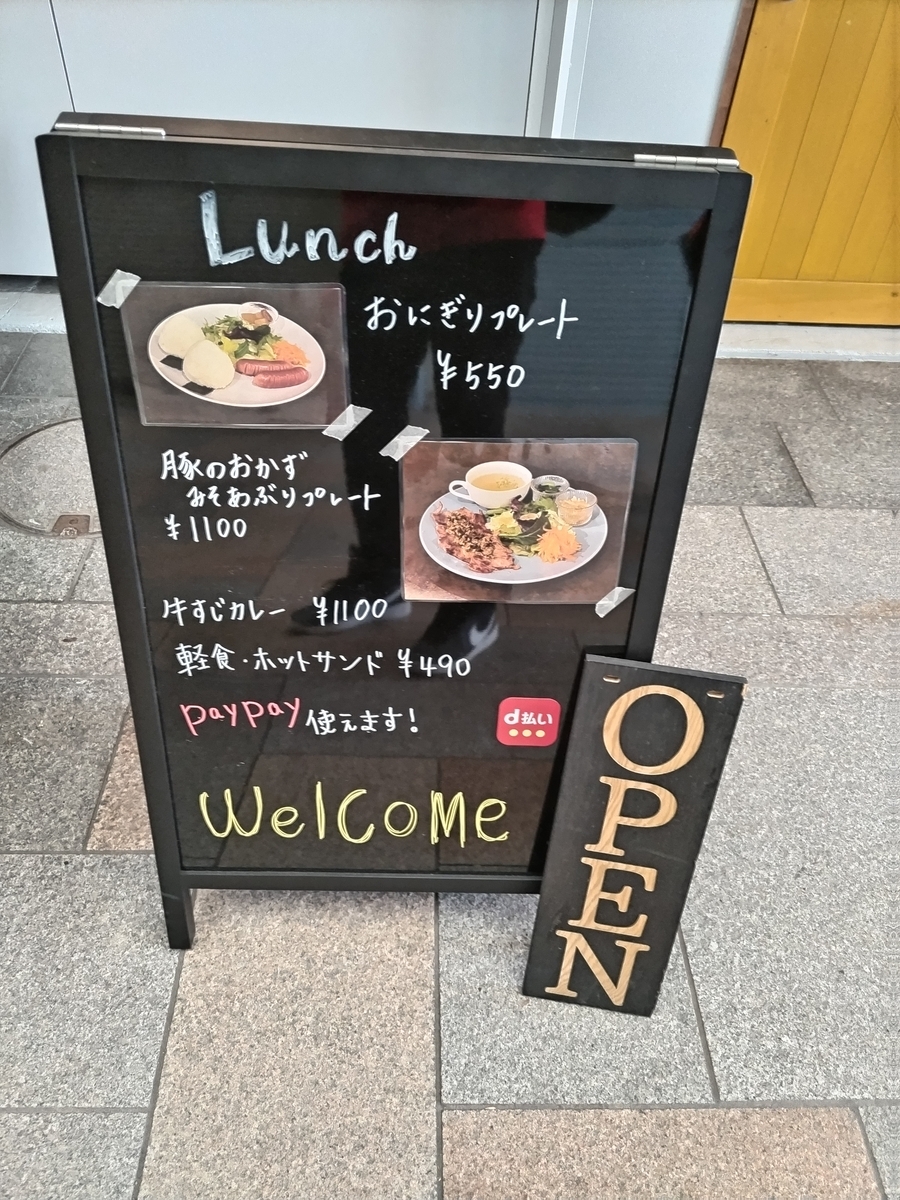 Lunch
おにぎりプレート
¥550
豚のおかず
みそあぶりプレート
¥1100
牛すじカレー ¥1100
軽食・ホットサンド ¥490
paypay使えます!
d払い
WelCoMe
OPEN